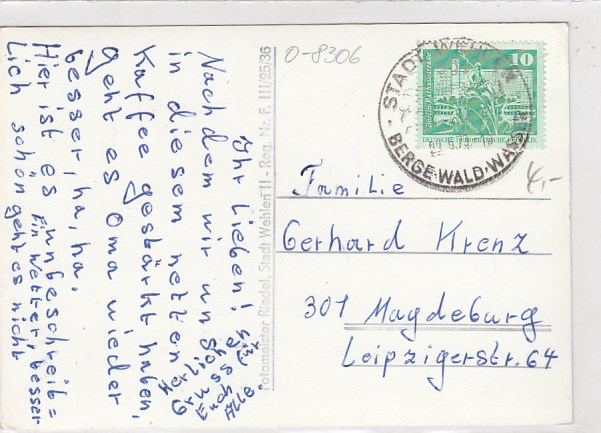 Ihr Lieben!
Nachdem wir uns
in diesem netten
Kaffee gestärkt haben,
geht es Oma wieder
besser, ha, ha.
Hier ist es unbeschreib=
lich schön geht es nicht
Ein Wetter, besser
Herzliche
Grüsse
Euch
Alle.
Fotomeister Riedel, Stadt Wehlen II - Reg. Nr. F. 111/25/36
O-8306
STADT WEHLEN
BERGE·WALD·WASSER
10
Berlin Rathausstrasse
Familie
Gerhard Krenz
301 Magdeburg
Leipzigerstr. 64
4,-